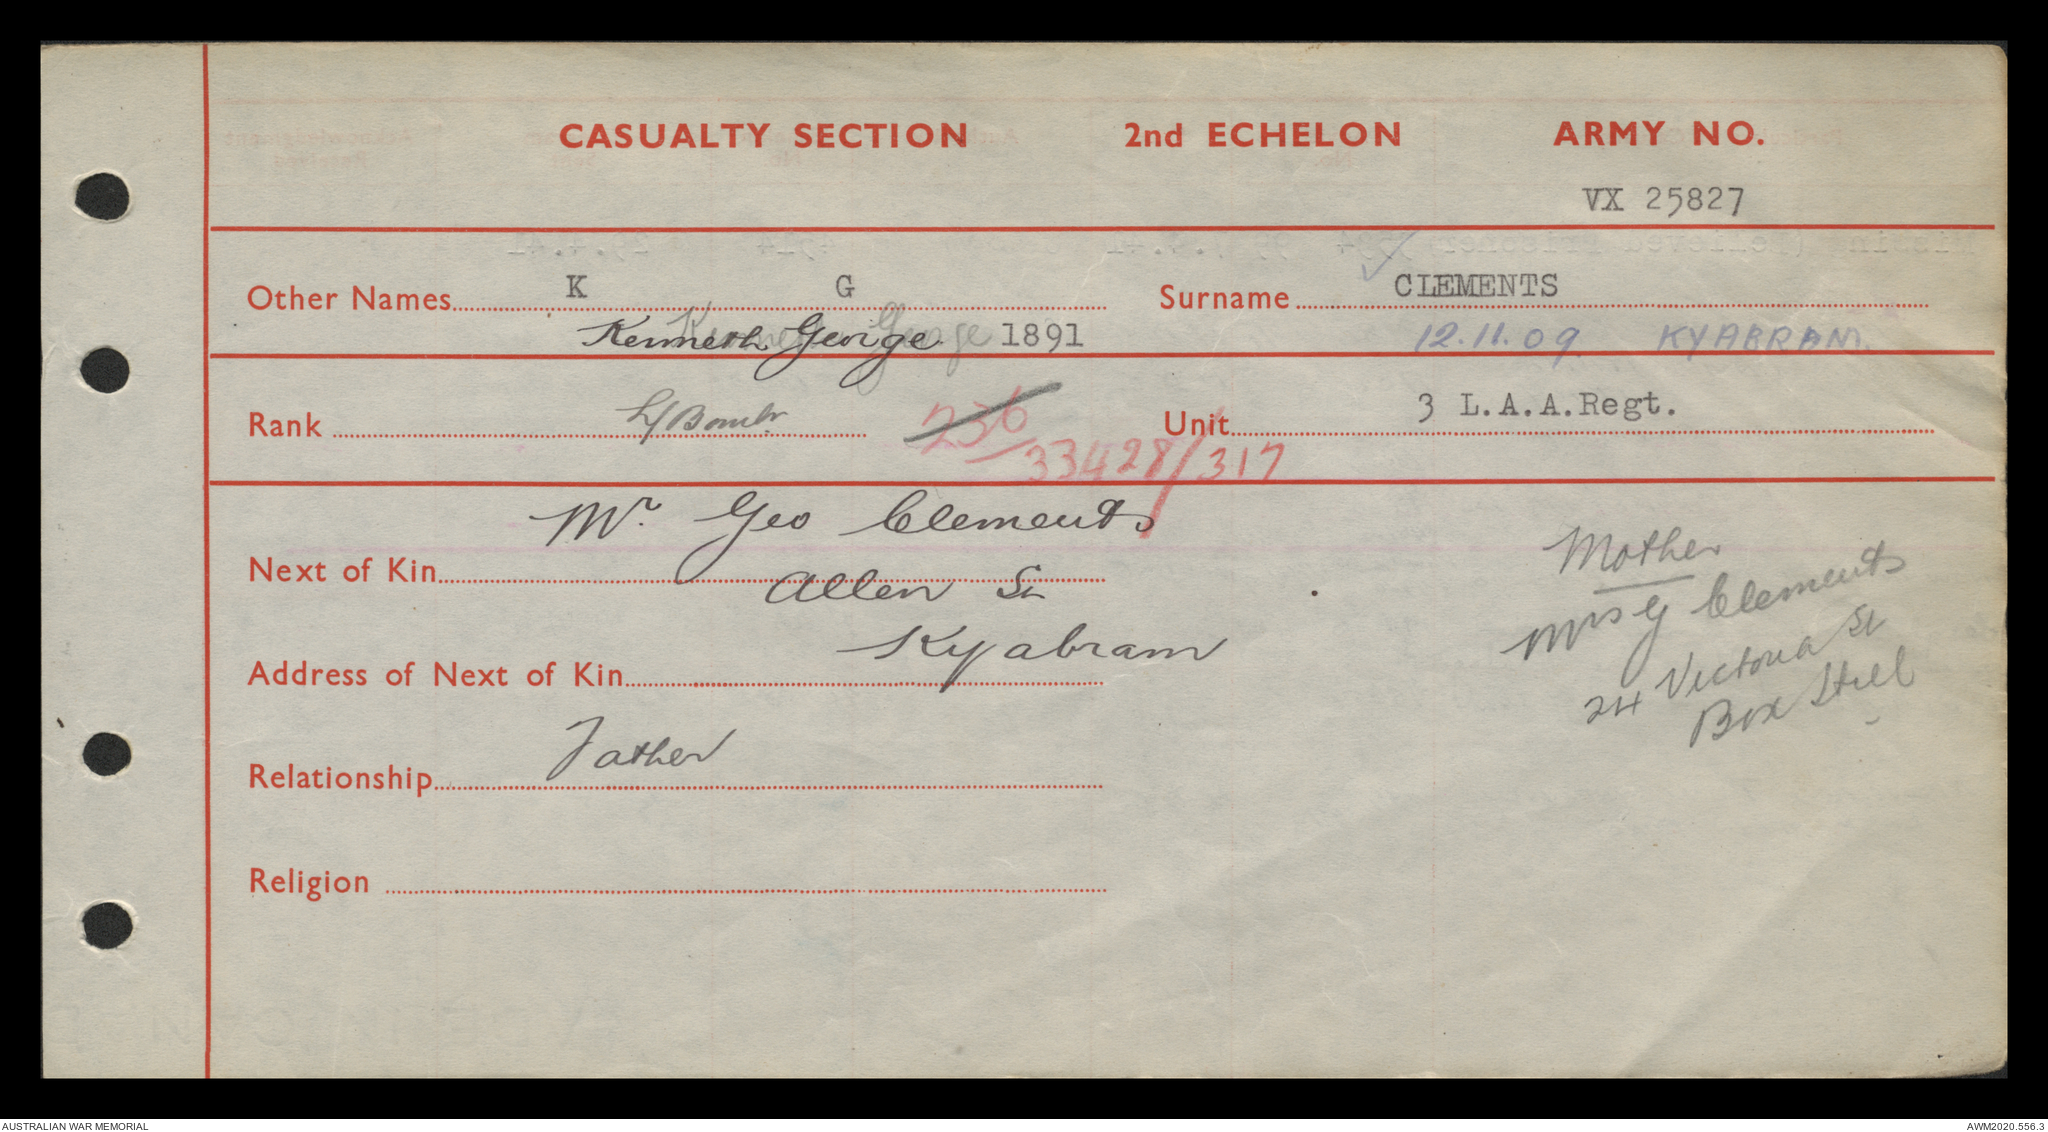 CASUALTY SECTION 2nd ECHELON ARMY NO.
VX 25827
Other Names K G Surname CLEMENTS
Kenneth George 1891 12.11.09 KYABRAM
Rank L/Bombr Unit 3 L.A.A.Regt.
236
33428/317
Mr Geo Clements
Next of Kin
Allen St
Kyabram
Address of Next of Kin
Father
Relationship
Religion
Mother
Mrs G Clements
24 Victoria St
Box Hill
AUSTRALIAN WAR MEMORIAL AWM2020.556.3